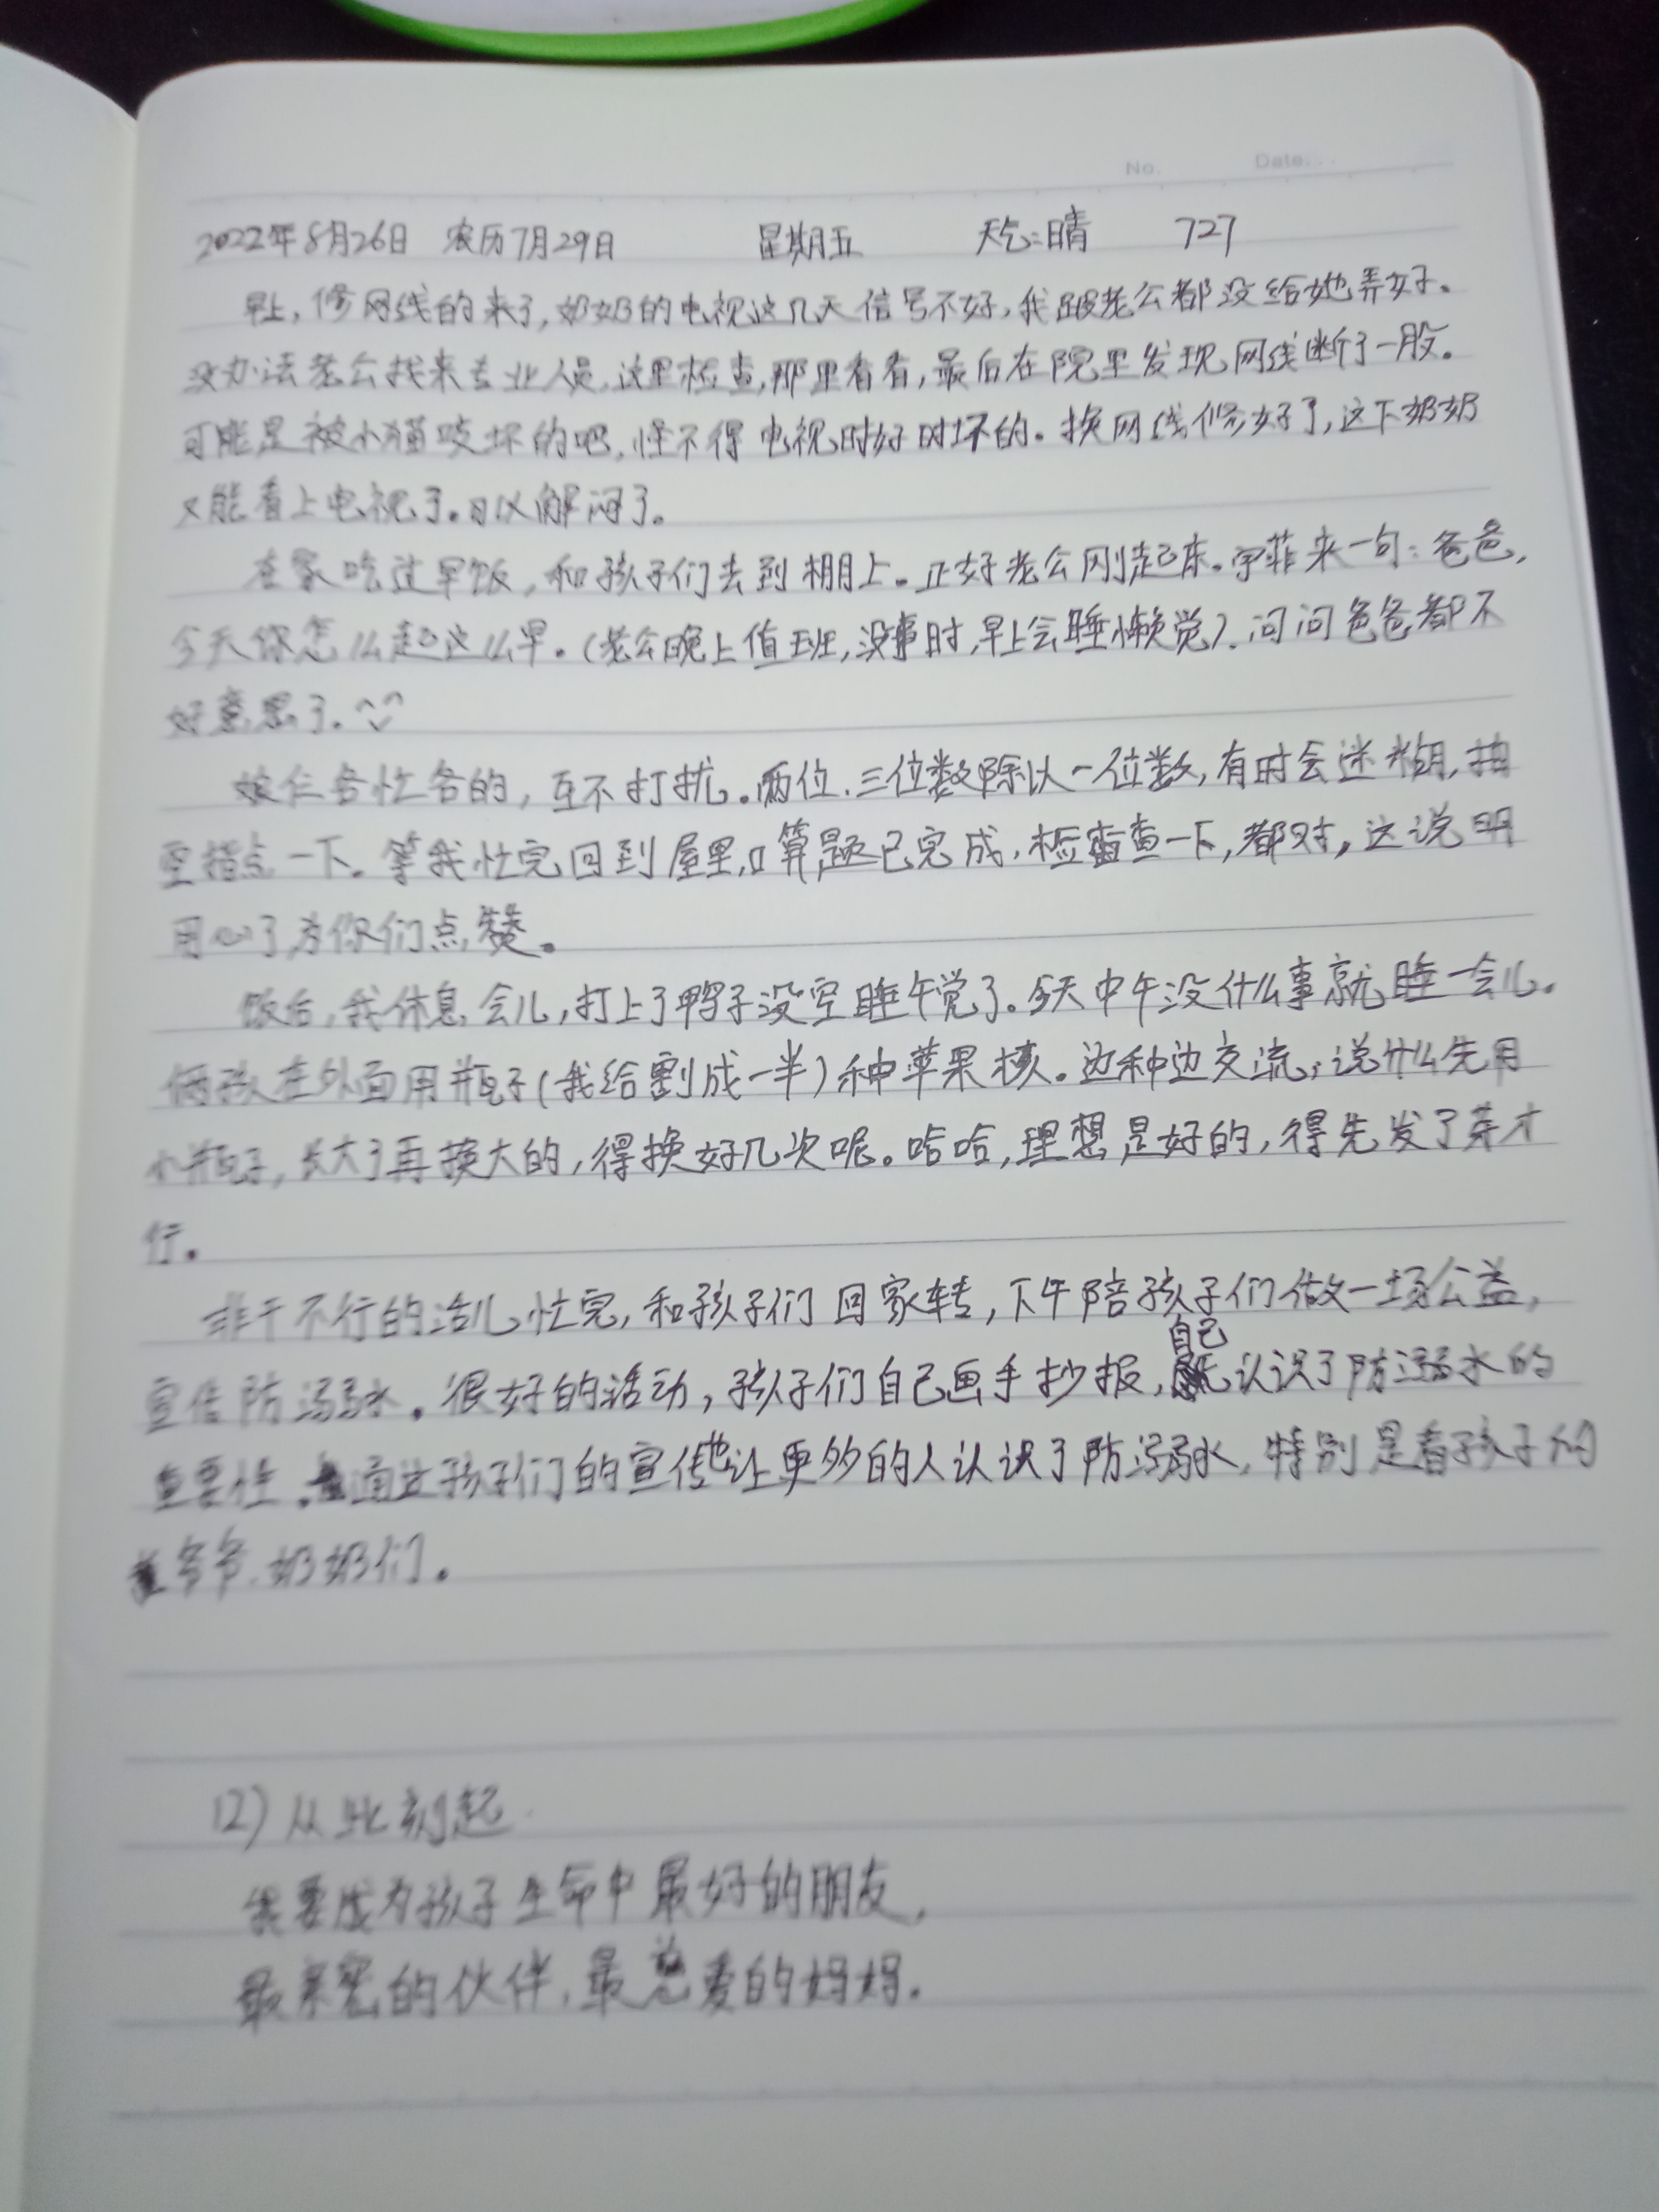 No. Date...
2022年8月26日 农历7月29日 星期五 天气:晴 727
早上,修网线的来了,奶奶的电视这几天信号不好,我跟老公都没给她弄好。
没办法老公找来专业人员,这里检查,那里看看,最后在院里发现网线断了一股。
可能是被小猫咬坏的吧,怪不得电视时好时坏的。换网线修好了,这下奶奶
又能看上电视了。可以解闷了。
在家吃过早饭,和孩子们去到棚上。正好老公刚起床。宇菲来一句:爸爸,
今天你怎么起这么早。(老公晚上值班,没事时,早上会睡懒觉).问问爸爸都不
好意思了.^◡^
娘仨各忙各的,互不打扰。两位.三位数除以一位数,有时会迷糊,抽
空指点一下。等我忙完回到屋里,口算题已完成,检查一下,都对,这说明
用心了,为你们点赞。
饭后,我休息会儿,打上了鸭子没空睡午觉了.今天中午没什么事就睡一会儿.
俩孩在外面用瓶子(我给割成一半)种苹果核。边种边交流,说什么先用
小瓶子,长大了再换大的,得换好几次呢。哈哈,理想是好的,得先发了芽才
行。
非干不行的活儿忙完,和孩子们回家转,下午陪孩子们做一场公益,
宣传防溺水。很好的活动,孩子们自己画手抄报,自己认识了防溺水的
重要性.通过孩子们的宣传也让更多的人认识了防溺水,特别是看孩子的
爷爷.奶奶们.
12)从此刻起.
我要成为孩子生命中最好的朋友,
最亲密的伙伴,最慈爱的妈妈.